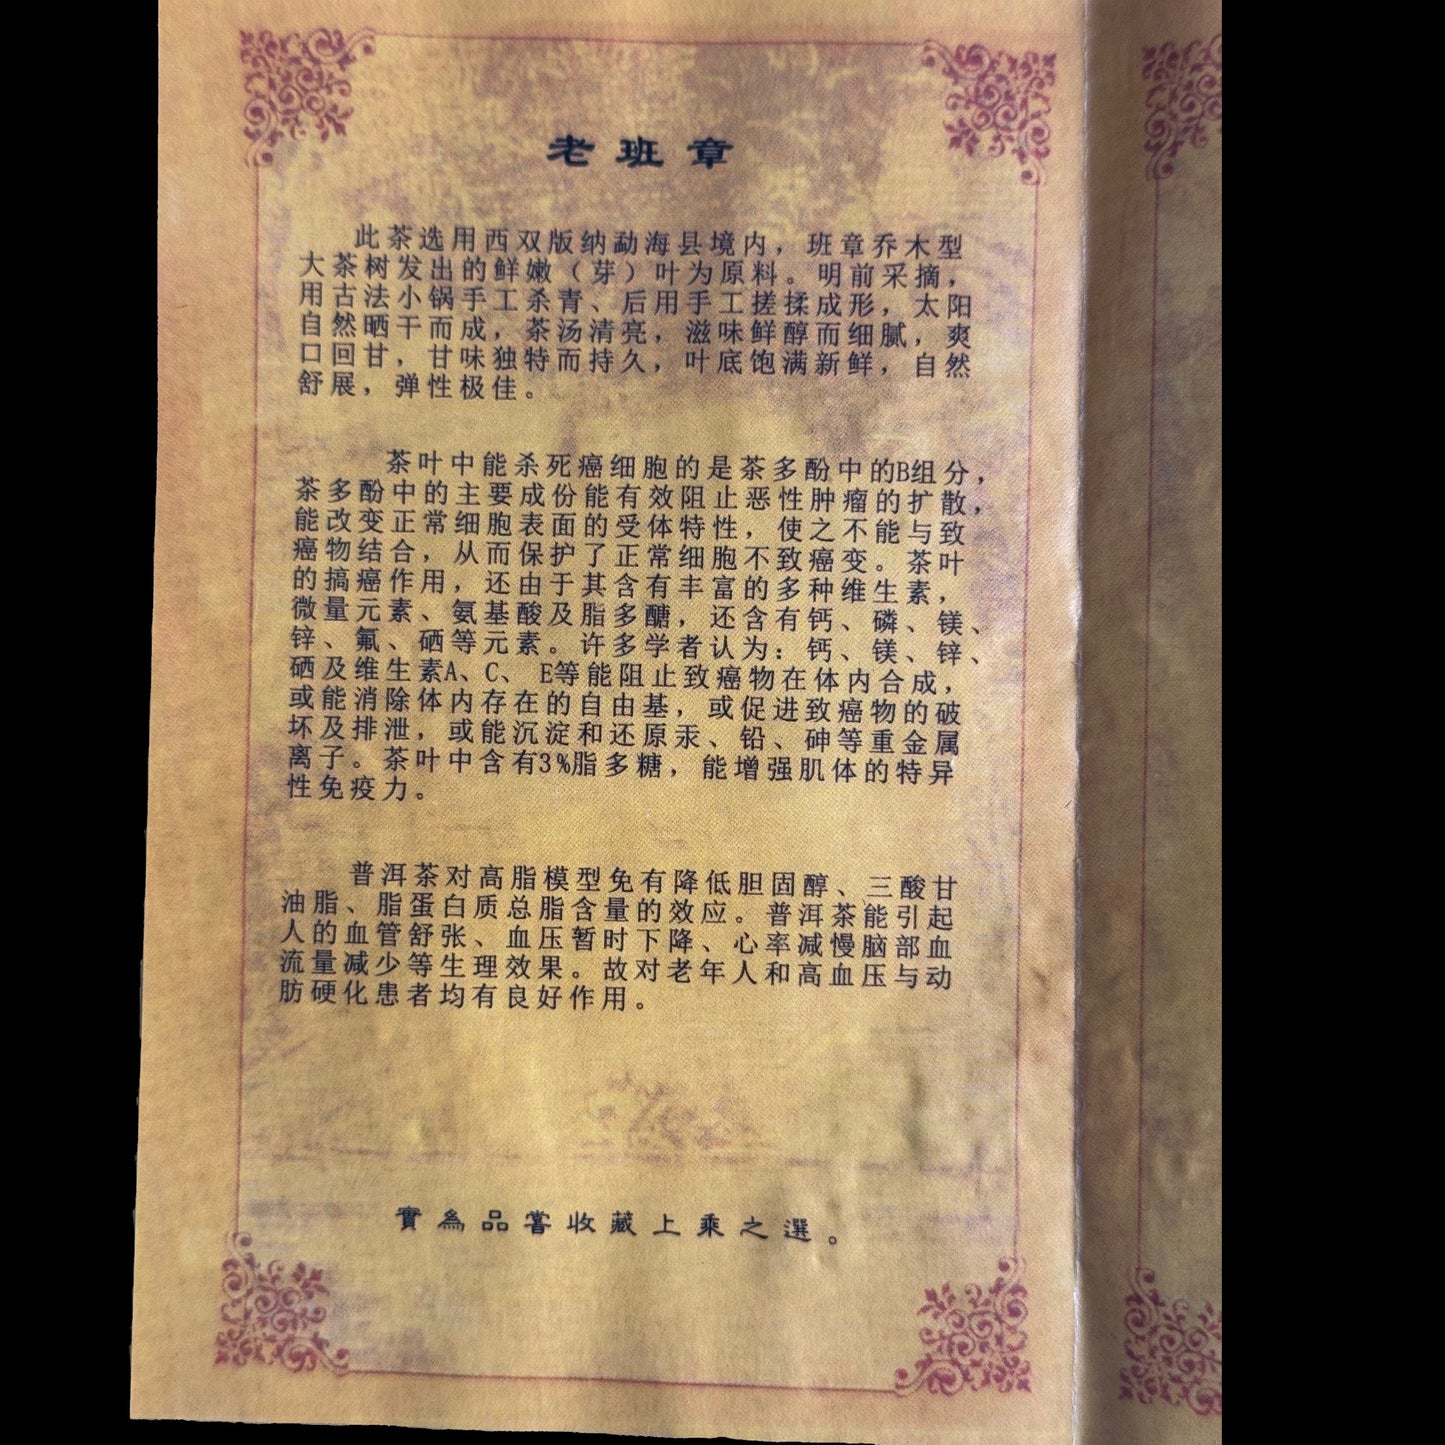 老班章
此茶选用西双版纳勐海县境内，班章乔木型
大茶树发出的鲜嫩（芽）叶为原料。明前采摘，
用古法小锅手工杀青、后用手工搓揉成形，太阳
自然晒干而成，茶汤清亮，滋味鲜醇而细腻，爽
口回甘，甘味独特而持久，叶底饱满新鲜，自然
舒展，弹性极佳。
茶叶中能杀死癌细胞的是茶多酚中的B组分，
茶多酚中的主要成份能有效阻止恶性肿瘤的扩散，
能改变正常细胞表面的受体特性，使之不能与致
癌物结合，从而保护了正常细胞不致癌变。茶叶
的搞癌作用，还由于其含有丰富的多种维生素，
微量元素、氨基酸及脂多醣，还含有钙、磷、镁、
锌、氟、硒等元素。许多学者认为：钙、镁、锌、
硒及维生素A、C、 E等能阻止致癌物在体内合成，
或能消除体内存在的自由基，或促进致癌物的破
坏及排泄，或能沉淀和还原汞、铅、砷等重金属
离子。茶叶中含有3%脂多糖，能增强肌体的特异
性免疫力。
普洱茶对高脂模型免有降低胆固醇、三酸甘
油脂、脂蛋白质总脂含量的效应。普洱茶能引起
人的血管舒张、血压暂时下降、心率减慢脑部血
流量减少等生理效果。故对老年人和高血压与动
肪硬化患者均有良好作用。
實為品嘗收藏上乘之選。